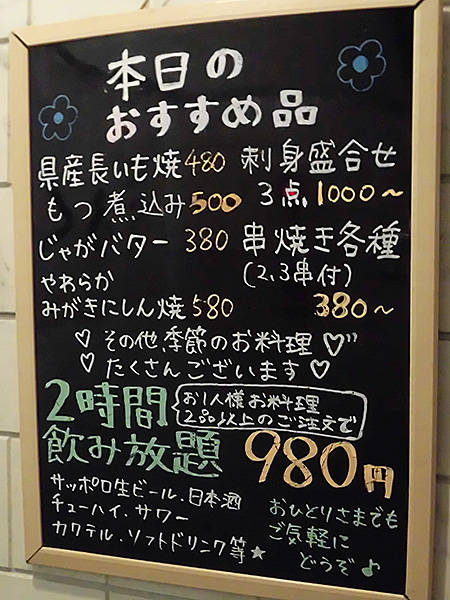 本日の
おすすめ品
県産長いも焼 480
もつ煮込み 500
じゃがバター 380
やわらか
みがきにしん焼 580
刺身盛合せ
3点 1000～
串焼き各種
(2,3串付)
380～
♡ その他季節のお料理 ♡
♡ たくさんございます ♡
2時間
飲み放題
お1人様お料理
2品以上のご注文で
980円
サッポロ生ビール.日本酒
チューハイ.サワー
カクテル.ソフトドリンク等★
おひとりさまでも
ご気軽に
どうぞ♪